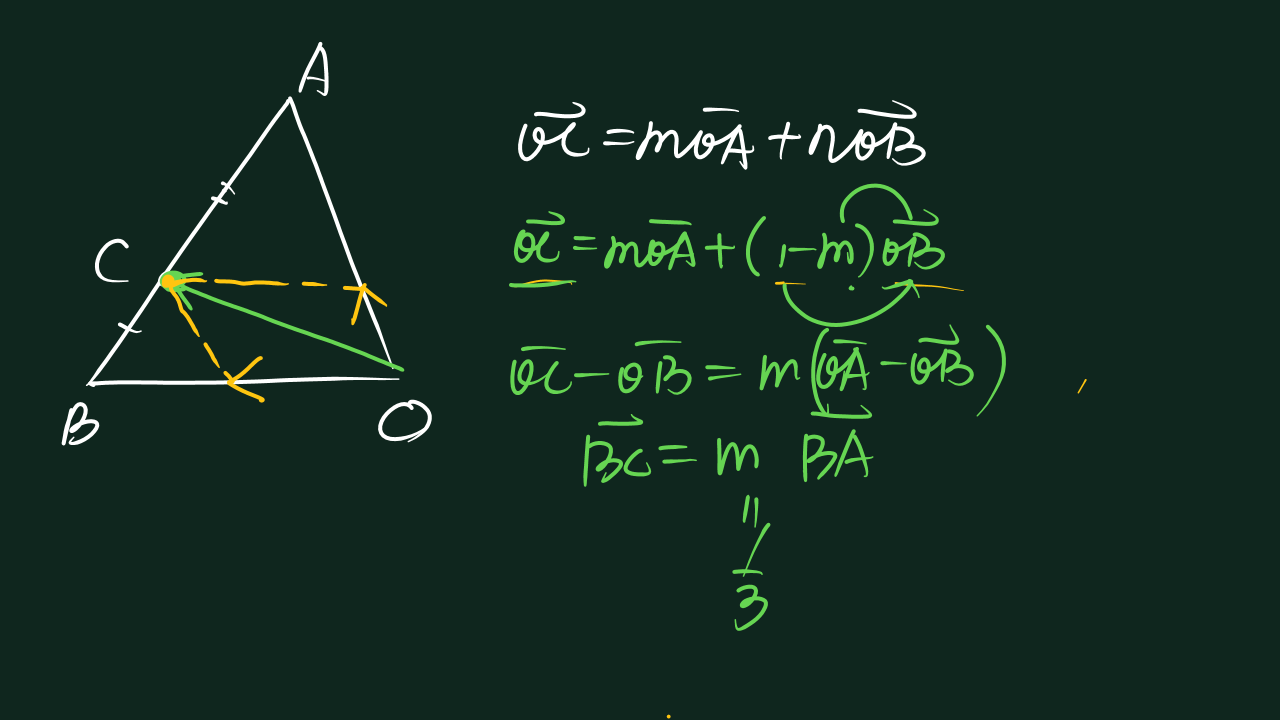 A
C
B
O
\vec{OC} = m\vec{OA} + n\vec{OB}
\vec{OC} = m\vec{OA} + (1-m)\vec{OB}
\vec{OC} - \vec{OB} = m(\vec{OA} - \vec{OB})
\vec{BC} = m \vec{BA}
=
1/3